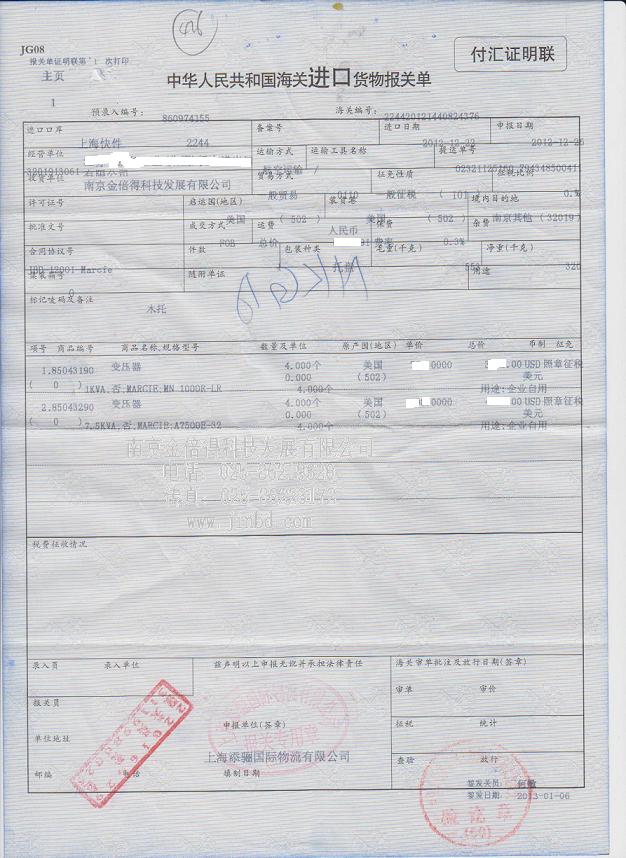 426
JG08
报关单证明联第 1 次打印
主页
付汇证明联
中华人民共和国海关进口货物报关单
1
预录入编号: 860974155 海关编号: 224420121440824376
进口口岸 备案号 进口日期 申报日期
上海快件 2244 2012-12-22 2012-12-26
经营单位 运输方式 运输工具名称 提运单号
3201913061 航空运输 /
收货单位 贸易方式 征免性质 征税比例
南京金倍得科技发展有限公司 一般贸易 0110 一般征税 ( 101 )
许可证号 启运国(地区) 装货港 境内目的地
美国 ( 502 ) 美国 ( 502 ) 南京其他 (32019)
批准文号 成交方式 运费 保费 杂费
FOB 总价 人民币 费率 0.3%
合同协议号 件数 包装种类 毛重(千克) 净重(千克)
JBD 12001 Marcie 托盘
集装箱号 随附单证 用途
0
标记唛码及备注
木托
项号 商品编号 商品名称,规格型号 数量及单位 原产国(地区) 单价 总价 币制 征免
1.85043190 变压器 4.000个 美国 0000 .00 USD 照章征税
( 0 ) 0.000 (502) 美元
1KVA,否,MARCIE,MN 1000R-LR 4.000个 用途:企业自用
2.85043290 变压器 4.000个 美国 0000 .00 USD 照章征税
( 0 ) 0.000 (502) 美元
7.5KVA,否,MARCIE,A7500E-32 4.000个 用途:企业自用
南京金倍得科技发展有限公司
www.jinbd.com
税费征收情况
录入员 录入单位 兹声明以上申报无讹并承担法律责任 海关审单批注及放行日期(签章)
审单 审价
报关员
申报单位(签章) 征税 统计
单位地址
上海添骊国际物流有限公司
查验 放行
邮编 电话 填制日期
签发关员: 何敏
签发日期: 2013-01-06
验讫章
(60)